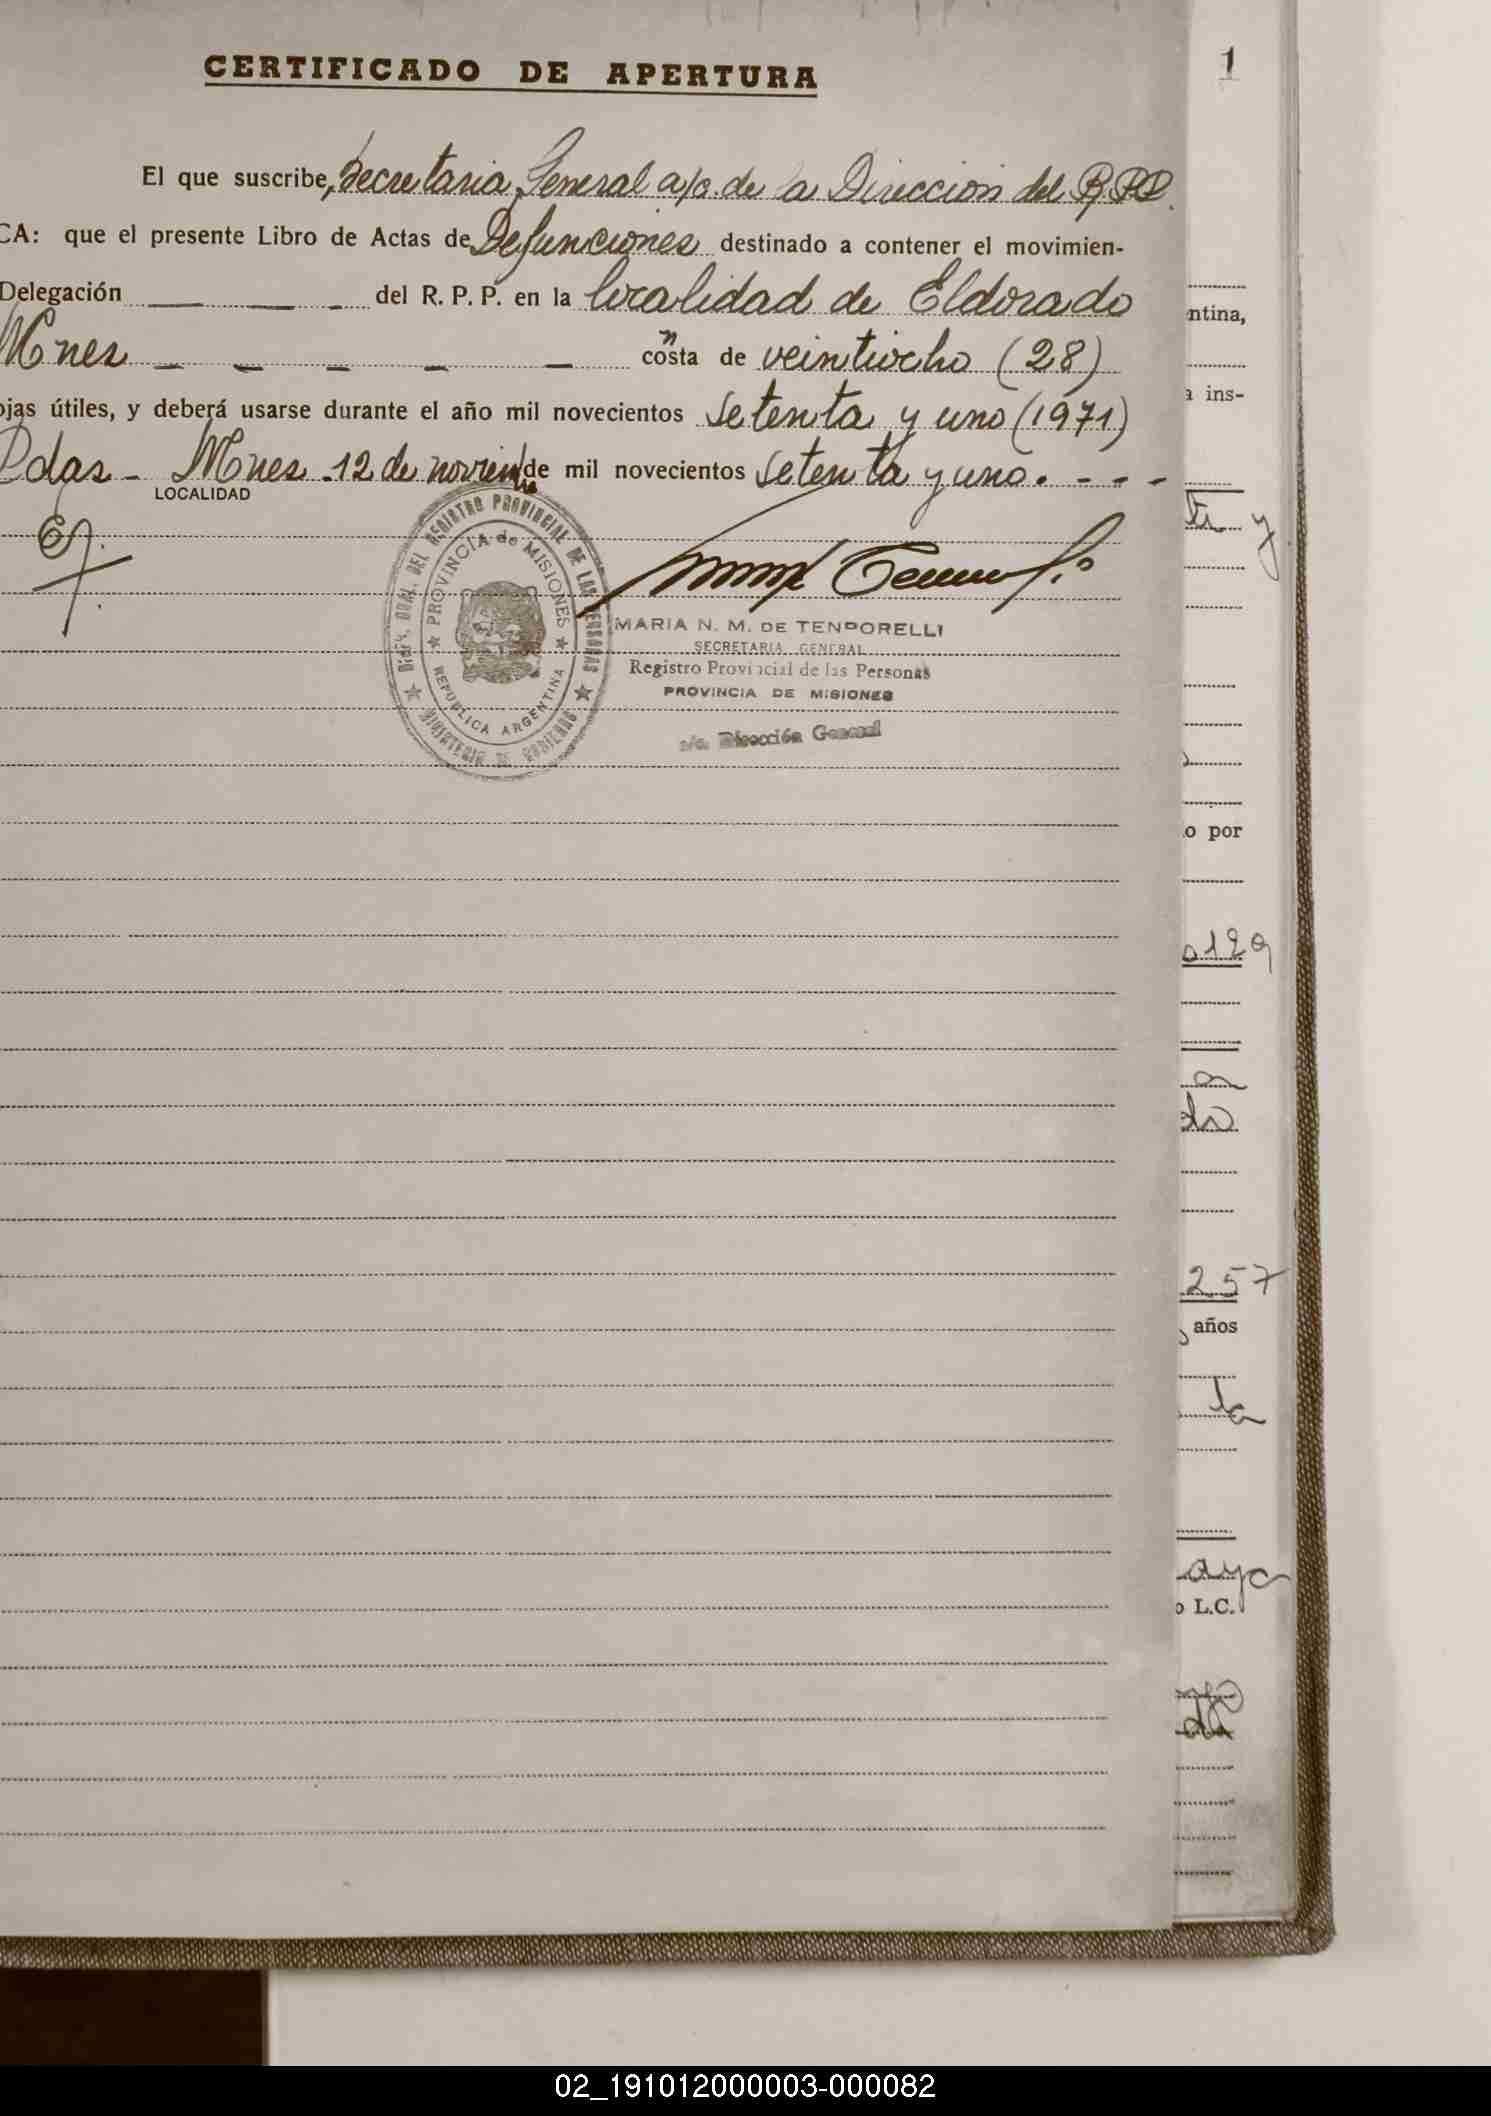 CERTIFICADO DE APERTURA
1
El que suscribe, Secretaria General a/c. de la Dirección del R.P.P.
CA: que el presente Libro de Actas de Defunciones destinado a contener el movimien-
Delegación — — - del R. P. P. en la localidad de Eldorado
Mnes - - - - - consta de veintiocho (28)
ojas útiles, y deberá usarse durante el año mil novecientos setenta y uno (1971)
Pdas - Mnes. 12 de noviembre de mil novecientos setenta y uno. - - -
LOCALIDAD
DIREC. GRAL. DEL REGISTRO PROVINCIAL DE LAS PERSONAS
PROVINCIA de MISIONES
REPUBLICA ARGENTINA
MINISTERIO DE GOBIERNO
MARIA N. M. DE TEMPORELLI
SECRETARIA GENERAL
Registro Provincial de las Personas
PROVINCIA DE MISIONES
a/c. Dirección General
ntina,
a ins-
y
o por
129
a
do
257
años
la
aya
o L.C.
02_191012000003-000082